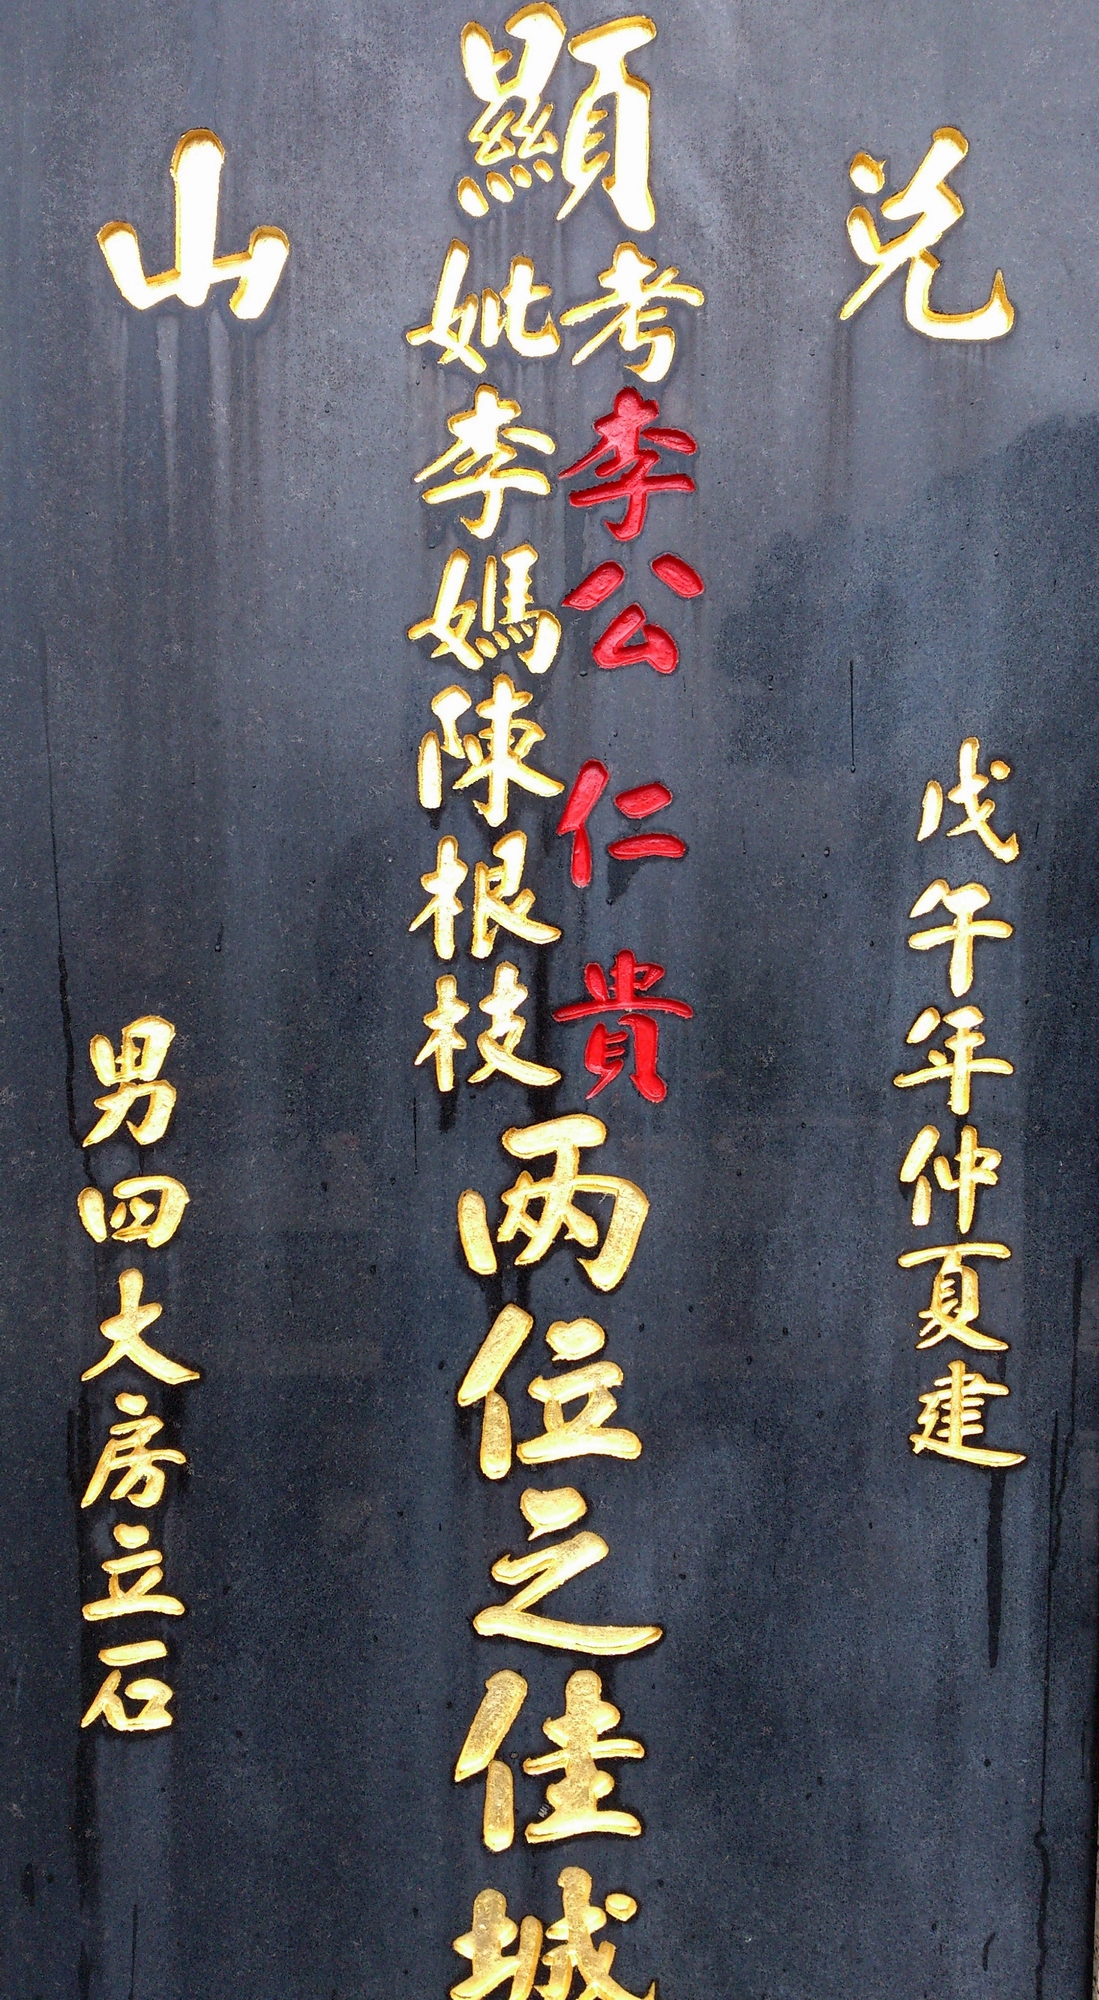 兌山
戊午年仲夏建
顯
考李公仁貴
妣李媽陳根枝
兩位之佳城
男四大房立石